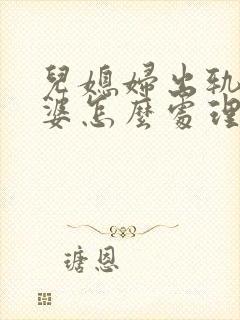 兒媳婦出軌
婆怎麼處理
瑭恩